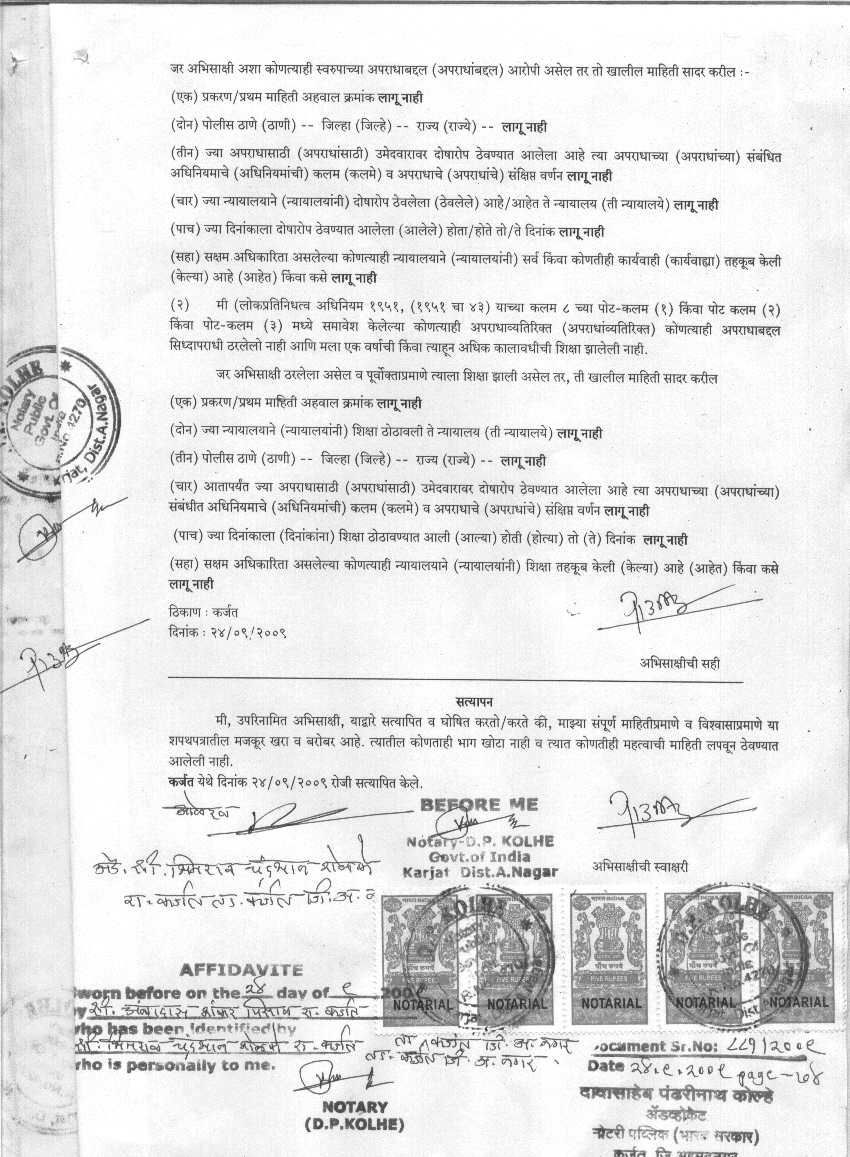 जर अभिसाक्षी अशा कोणत्याही स्वरुपाच्या अपराधाबद्दल (अपराधांबद्दल) आरोपी असेल तर तो खालील माहिती सादर करील :-
(एक) प्रकरण/प्रथम माहिती अहवाल क्रमांक लागू नाही
(दोन) पोलीस ठाणे (ठाणी) -- जिल्हा (जिल्हे) -- राज्य (राज्ये) -- लागू नाही
(तीन) ज्या अपराधासाठी (अपराधांसाठी) उमेदवारावर दोषारोप ठेवण्यात आलेला आहे त्या अपराधाच्या (अपराधांच्या) संबंधित
अधिनियमाचे (अधिनियमांची) कलम (कलमे) व अपराधाचे (अपराधांचे) संक्षिप्त वर्णन लागू नाही
(चार) ज्या न्यायालयाने (न्यायालयांनी) दोषारोप ठेवलेला (ठेवलेले) आहे/आहेत ते न्यायालय (ती न्यायालये) लागू नाही
(पाच) ज्या दिनांकाला दोषारोप ठेवण्यात आलेला (आलेले) होता/होते तो/ते दिनांक लागू नाही
(सहा) सक्षम अधिकारिता असलेल्या कोणत्याही न्यायालयाने (न्यायालयांनी) सर्व किंवा कोणतीही कार्यवाही (कार्यवाह्या) तहकूब केली
(केल्या) आहे (आहेत) किंवा कसे लागू नाही
(२) मी (लोकप्रतिनिधत्व अधिनियम १९५१, (१९५१ चा ४३) याच्या कलम ८ च्या पोट-कलम (१) किंवा पोट कलम (२)
किंवा पोट-कलम (३) मध्ये समावेश केलेल्या कोणत्याही अपराधाव्यतिरिक्त (अपराधांव्यतिरिक्त) कोणत्याही अपराधाबद्दल
सिध्दापराधी ठरलेलो नाही आणि मला एक वर्षाची किंवा त्याहून अधिक कालावधीची शिक्षा झालेली नाही.
जर अभिसाक्षी ठरलेला असेल व पूर्वोक्ताप्रमाणे त्याला शिक्षा झाली असेल तर, ती खालील माहिती सादर करील
(एक) प्रकरण/प्रथम माहिती अहवाल क्रमांक लागू नाही
(दोन) ज्या न्यायालयाने (न्यायालयांनी) शिक्षा ठोठावली ते न्यायालय (ती न्यायालये) लागू नाही
(तीन) पोलीस ठाणे (ठाणी) -- जिल्हा (जिल्हे) -- राज्य (राज्ये) -- लागू नाही
(चार) आतापर्यंत ज्या अपराधासाठी (अपराधांसाठी) उमेदवारावर दोषारोप ठेवण्यात आलेला आहे त्या अपराधाच्या (अपराधांच्या)
संबंधीत अधिनियमाचे (अधिनियमांची) कलम (कलमे) व अपराधाचे (अपराधांचे) संक्षिप्त वर्णन लागू नाही
(पाच) ज्या दिनांकाला (दिनांकांना) शिक्षा ठोठावण्यात आली (आल्या) होती (होत्या) तो (ते) दिनांक लागू नाही
(सहा) सक्षम अधिकारिता असलेल्या कोणत्याही न्यायालयाने (न्यायालयांनी) शिक्षा तहकूब केली (केल्या) आहे (आहेत) किंवा कसे
लागू नाही
ठिकाण : कर्जत
दिनांक : २४/०९/२००९
अभिसाक्षीची सही
सत्यापन
मी, उपरिनामित अभिसाक्षी, याद्वारे सत्यापित व घोषित करतो/करते की, माझ्या संपूर्ण माहितीप्रमाणे व विश्वासाप्रमाणे या
शपथपत्रातील मजकूर खरा व बरोबर आहे. त्यातील कोणताही भाग खोटा नाही व त्यात कोणतीही महत्वाची माहिती लपवून ठेवण्यात
आलेली नाही.
कर्जत येथे दिनांक २४/०९/२००९ रोजी सत्यापित केले.
BEFORE ME
Notary-D.P. KOLHE
Govt.of India
Karjat Dist.A.Nagar
अभिसाक्षीची स्वाक्षरी
रा. कर्जत ता. कर्जत जि. अ.
KOLHE
Notary
Public
Govt. Of
Dist.A.Nagar
D.P. KOLHE
FIVE RUPEES
NOTARIAL
NOTARIAL
NOTARIAL
NOTARIAL
NOTARIAL
AFFIDAVITE
Sworn before on the २४ day of ९ 200
who has been identified by
who is personally to me.
ता. कर्जत जि. अ. नगर
NOTARY
(D.P.KOLHE)
Document Sr.No: ८८१/२००९
Date २४.९.२००९ page-
दावासाहेब पंढरीनाथ कोल्हे
ॲडव्होकेट
नोटरी पब्लिक (भारत सरकार)
कर्जत, जि अहमदनगर